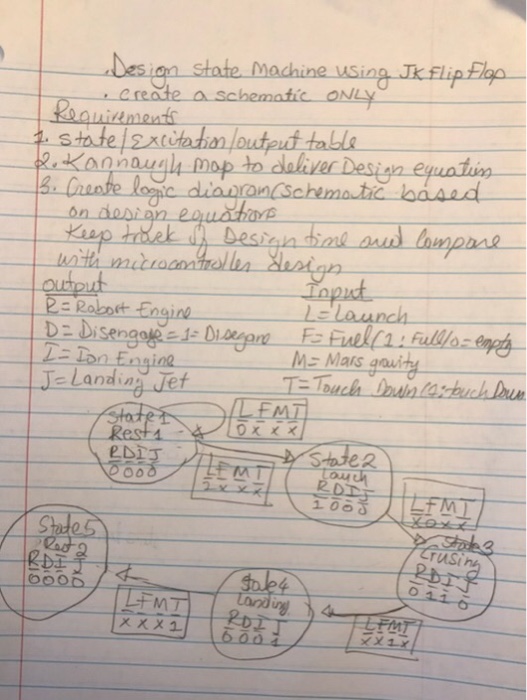 . Design state Machine using JK flip Flop
. create a schematic ONLY
Requirements
1. state/Excitation/output table
2. Kannaugh map to deliver Design equation
3. Create logic diagram (schematic based
on design equations
Keep track of Design time and Compare
with microcontroller design
output Input
R = Robort Engine L = Launch
D = Disengage = 1 = Disengage F = Fuel (1: Full/0 = empty
I = Ion Engine M = Mars gravity
J = Landing Jet T = Touch Down (1: touch Down
State 1
Rest 1
R D I J
0 0 0 0
L F M T
0 x x x
L F M T
1 x x x
State 2
Lauch
R D I J
1 0 0 0
L F M T
x 0 x x
State 3
Crusing
R D I J
0 1 1 0
L F M T
x x 1 x
State 4
Landing
R D I J
0 0 0 1
L F M T
x x x 1
State 5
Rest 2
R D I J
0 0 0 0